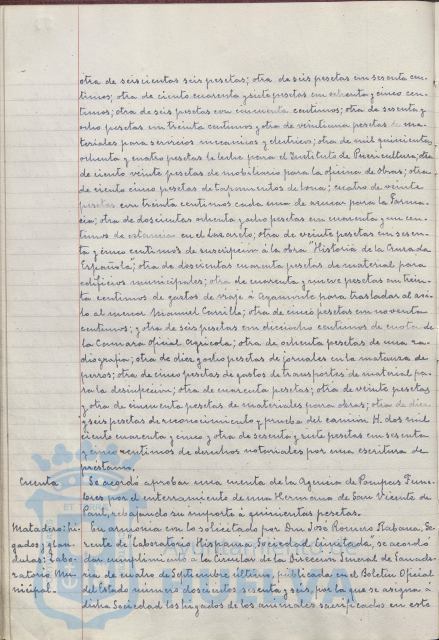 otra de seiscientas seis pesetas; otra de seis pesetas con sesenta cén-
timos; otra de ciento cuarenta y siete pesetas con ochenta y cinco cén-
timos; otra de seis pesetas con cincuenta céntimos; otra de sesenta y
ocho pesetas con treinta céntimos y otra de veintiuna pesetas de ma-
teriales para servicios mecánicos y eléctricos; otra de mil quinientas
ochenta y cuatro pesetas la leche para el Instituto de Puericultura; otra
de ciento veinte pesetas de mobiliario para la oficina de Obras; otra
de ciento cinco pesetas de de lona; cuatro de veinte
pesetas con treinta céntimos cada una de azúcar para la Farma-
cia; otra de doscientas ochenta y ocho pesetas con cuarenta y un cén-
timos de estancias en el Lazareto; otra de veinte pesetas con sesen-
ta y cinco céntimos de suscripción á la obra "Historia de la Cruzada
Española"; otra de doscientas cuarenta pesetas de material para
edificios municipales; otra de cuarenta y nueve pesetas con trein-
ta céntimos de gastos de viaje á Ayamonte para trasladar al asi-
lo al menor Manuel Carrillo; otra de cinco pesetas con noventa
céntimos; y otra de seis pesetas con dieciocho céntimos de cuota de
la Cámara oficial Agrícola; otra de ochenta pesetas de una ra-
diografía; otra de diez y ocho pesetas de jornales en la matanza de
perros; otra de cinco pesetas de gastos de transportes de material pa-
ra la desinfección; otra de cuarenta pesetas; otra de veinte pesetas
y otra de cincuenta pesetas de materiales para obras; otra de diez
y seis pesetas de reconocimiento y prueba del camión H. dos mil
ciento cuarenta y cinco y otra de sesenta y siete pesetas con sesenta
y cinco céntimos de derechos notariales por una escritura de
préstamo.
Cuenta Se acordó aprobar una cuenta de la Agencia de Pompas Fúne-
bres por el enterramiento de una Hermana de San Vicente de
Paul, rebajando su importe á quinientas pesetas.
Matadero: hí- En armonía con lo solicitado por Don José Romero Rabana, Ge-
gados y glán- rente de "Laboratorio Hispania, Sociedad Limitada", se acordó
dulas: Labo- dar cumplimiento á la Circular de la Dirección General de Ganade-
ratorio Mu- ría de cuatro de Septiembre último, publicada en el Boletín Oficial
nicipal. del Estado número doscientos sesenta y seis, por la que se asigna á
dicha Sociedad los hígados de los animales sacrificados en este
Ayuntamiento de